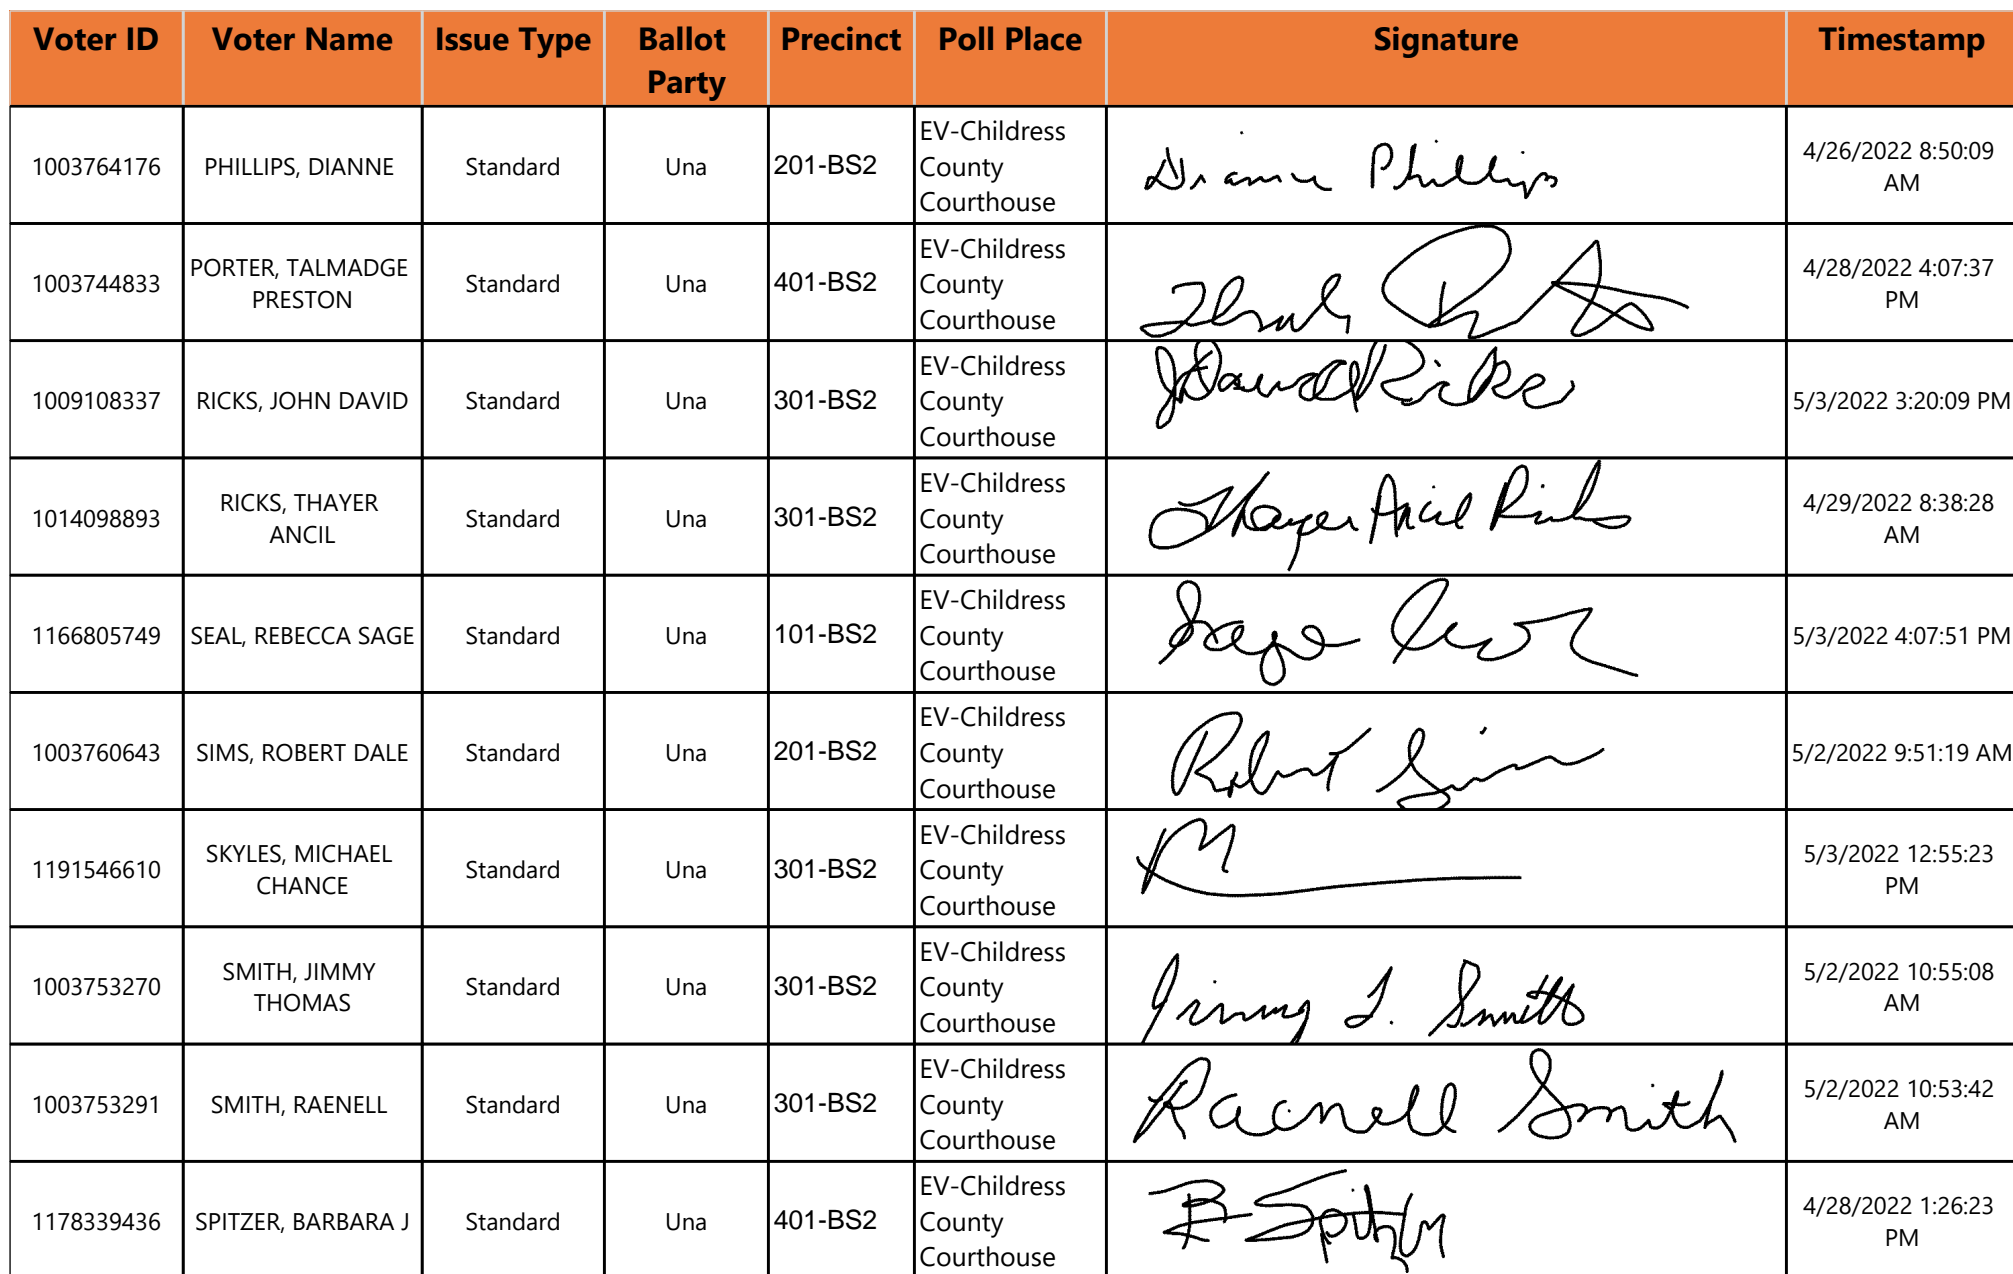 Voter ID Voter Name Issue Type Ballot Party Precinct Poll Place Signature Timestamp
1003764176 PHILLIPS, DIANNE Standard Una 201-BS2 EV-Childress County Courthouse Dianne Phillips 4/26/2022 8:50:09 AM
1003744833 PORTER, TALMADGE PRESTON Standard Una 401-BS2 EV-Childress County Courthouse 4/28/2022 4:07:37 PM
1009108337 RICKS, JOHN DAVID Standard Una 301-BS2 EV-Childress County Courthouse J David Ricks 5/3/2022 3:20:09 PM
1014098893 RICKS, THAYER ANCIL Standard Una 301-BS2 EV-Childress County Courthouse Thayer Ancil Ricks 4/29/2022 8:38:28 AM
1166805749 SEAL, REBECCA SAGE Standard Una 101-BS2 EV-Childress County Courthouse Sage 5/3/2022 4:07:51 PM
1003760643 SIMS, ROBERT DALE Standard Una 201-BS2 EV-Childress County Courthouse Robert Sims 5/2/2022 9:51:19 AM
1191546610 SKYLES, MICHAEL CHANCE Standard Una 301-BS2 EV-Childress County Courthouse 5/3/2022 12:55:23 PM
1003753270 SMITH, JIMMY THOMAS Standard Una 301-BS2 EV-Childress County Courthouse Jimmy T. Smith 5/2/2022 10:55:08 AM
1003753291 SMITH, RAENELL Standard Una 301-BS2 EV-Childress County Courthouse Raenell Smith 5/2/2022 10:53:42 AM
1178339436 SPITZER, BARBARA J Standard Una 401-BS2 EV-Childress County Courthouse B Spitzer 4/28/2022 1:26:23 PM